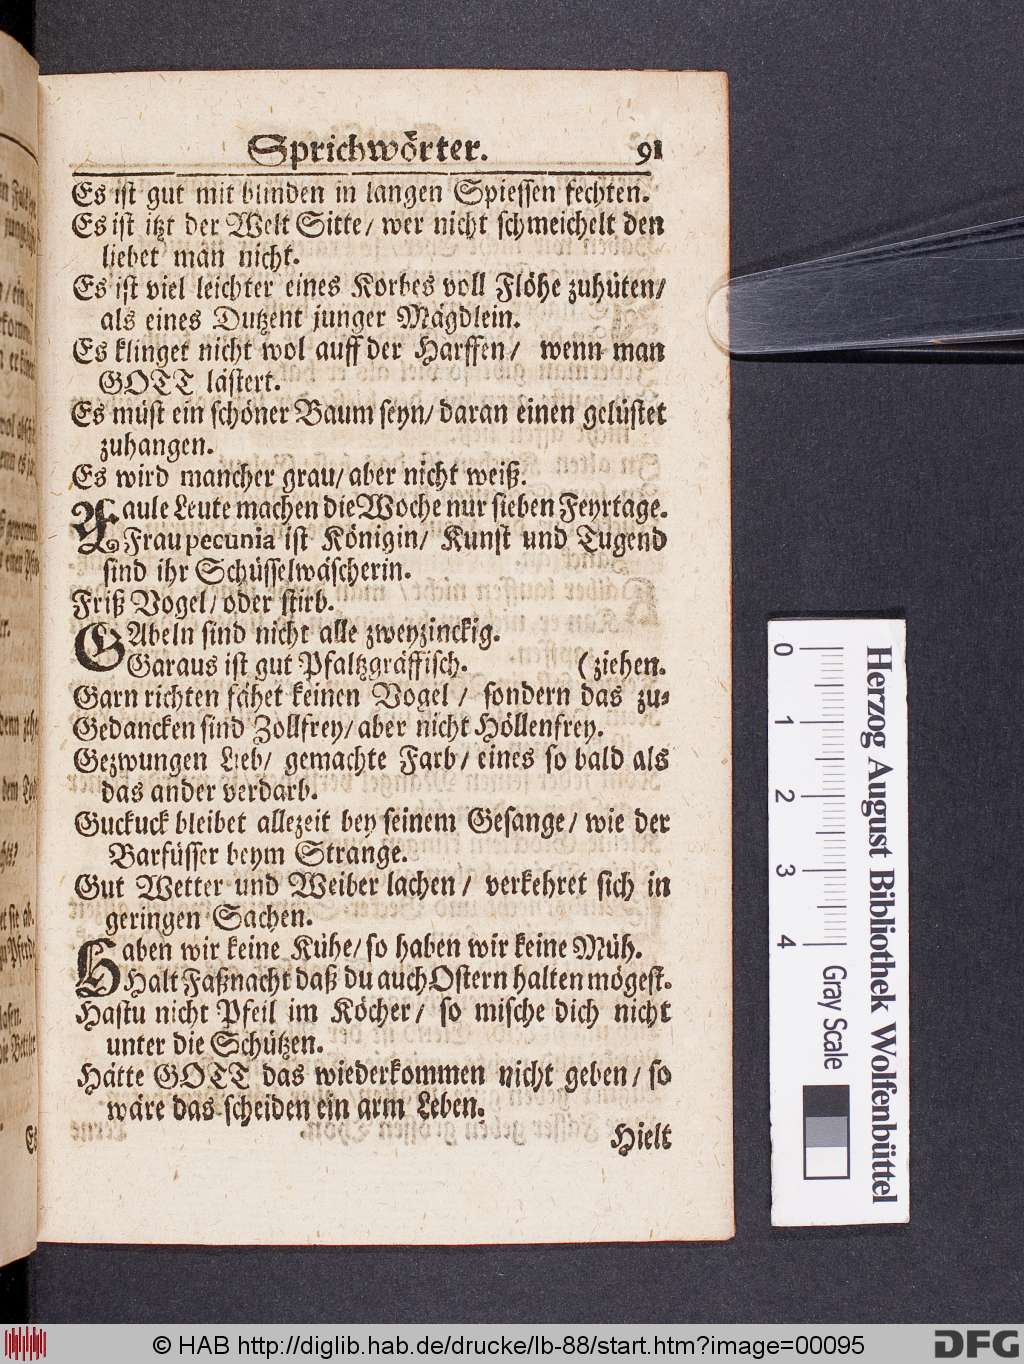 Sprichwörter. 91
Es ist gut mit blinden in langen Spiessen fechten.
Es ist itzt der Welt Sitte/ wer nicht schmeichelt den
liebet man nicht.
Es ist viel leichter eines Korbes voll Flöhe zuhüten/
als eines Dutzent junger Mägdlein.
Es klinget nicht wol auff der Harffen/ wenn man
GOTT lästert.
Es müst ein schöner Baum seyn/ daran einen gelüstet
zuhangen.
Es wird mancher grau/ aber nicht weiß.
Faule Leute machen die Woche nur sieben Feyrtage.
Frau pecunia ist Königin/ Kunst und Tugend
sind ihr Schüsselwäscherin.
Friß Vogel/ oder stirb.
GAbeln sind nicht alle zweyzinckig.
Garaus ist gut Pfaltzgräffisch. (ziehen.
Garn richten fähet keinen Vogel / sondern das zu-
Gedancken sind Zollfrey/ aber nicht Höllenfrey.
Gezwungen Lieb/ gemachte Farb/ eines so bald als
das ander verdarb.
Guckuck bleibet allezeit bey seinem Gesange/ wie der
Barfüsser beym Strange.
Gut Wetter und Weiber lachen/ verkehret sich in
geringen Sachen.
Haben wir keine Kühe/ so haben wir keine Müh.
Halt Faßnacht daß du auch Ostern halten mögest.
Hastu nicht Pfeil im Köcher/ so mische dich nicht
unter die Schützen.
Hätte GOTT das wiederkommen nicht geben/ so
wäre das scheiden ein arm Leben.
Hielt
0 1 2 3 4
Gray Scale
Herzog August Bibliothek Wolfenbüttel
© HAB http://diglib.hab.de/drucke/lb-88/start.htm?image=00095
DFG